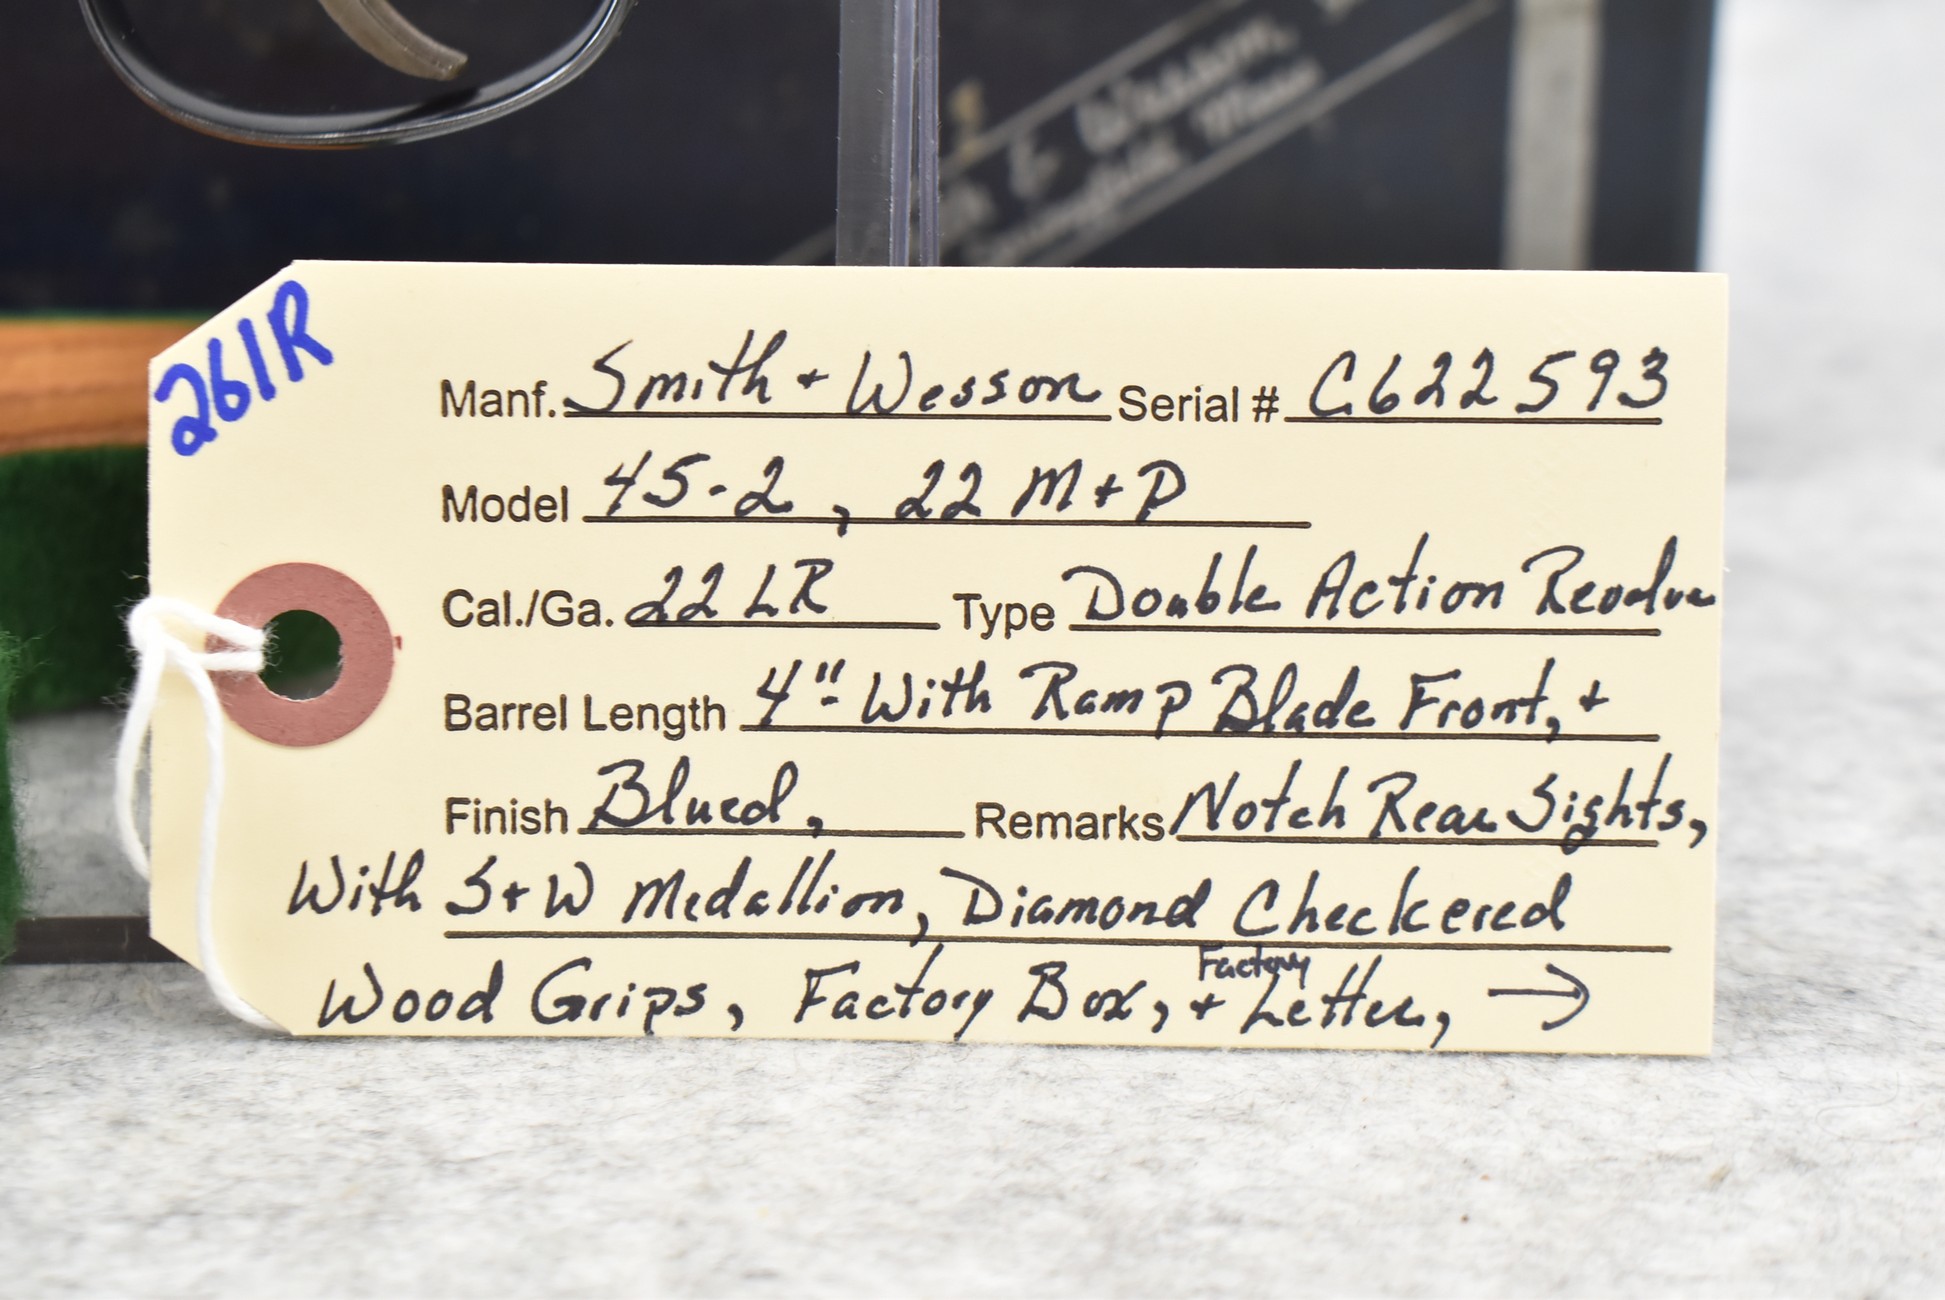 & Wesson,
Springfield Mass
261R
Manf. Smith + Wesson Serial # C622593
Model 45-2, 22 M+P
Cal./Ga. 22 LR Type Double Action Revolver
Barrel Length 4" With Ramp Blade Front, +
Finish Blued, Remarks Notch Rear Sights,
With S+W Medallion, Diamond Checkered
Wood Grips, Factory Box, + Factory Letter, →